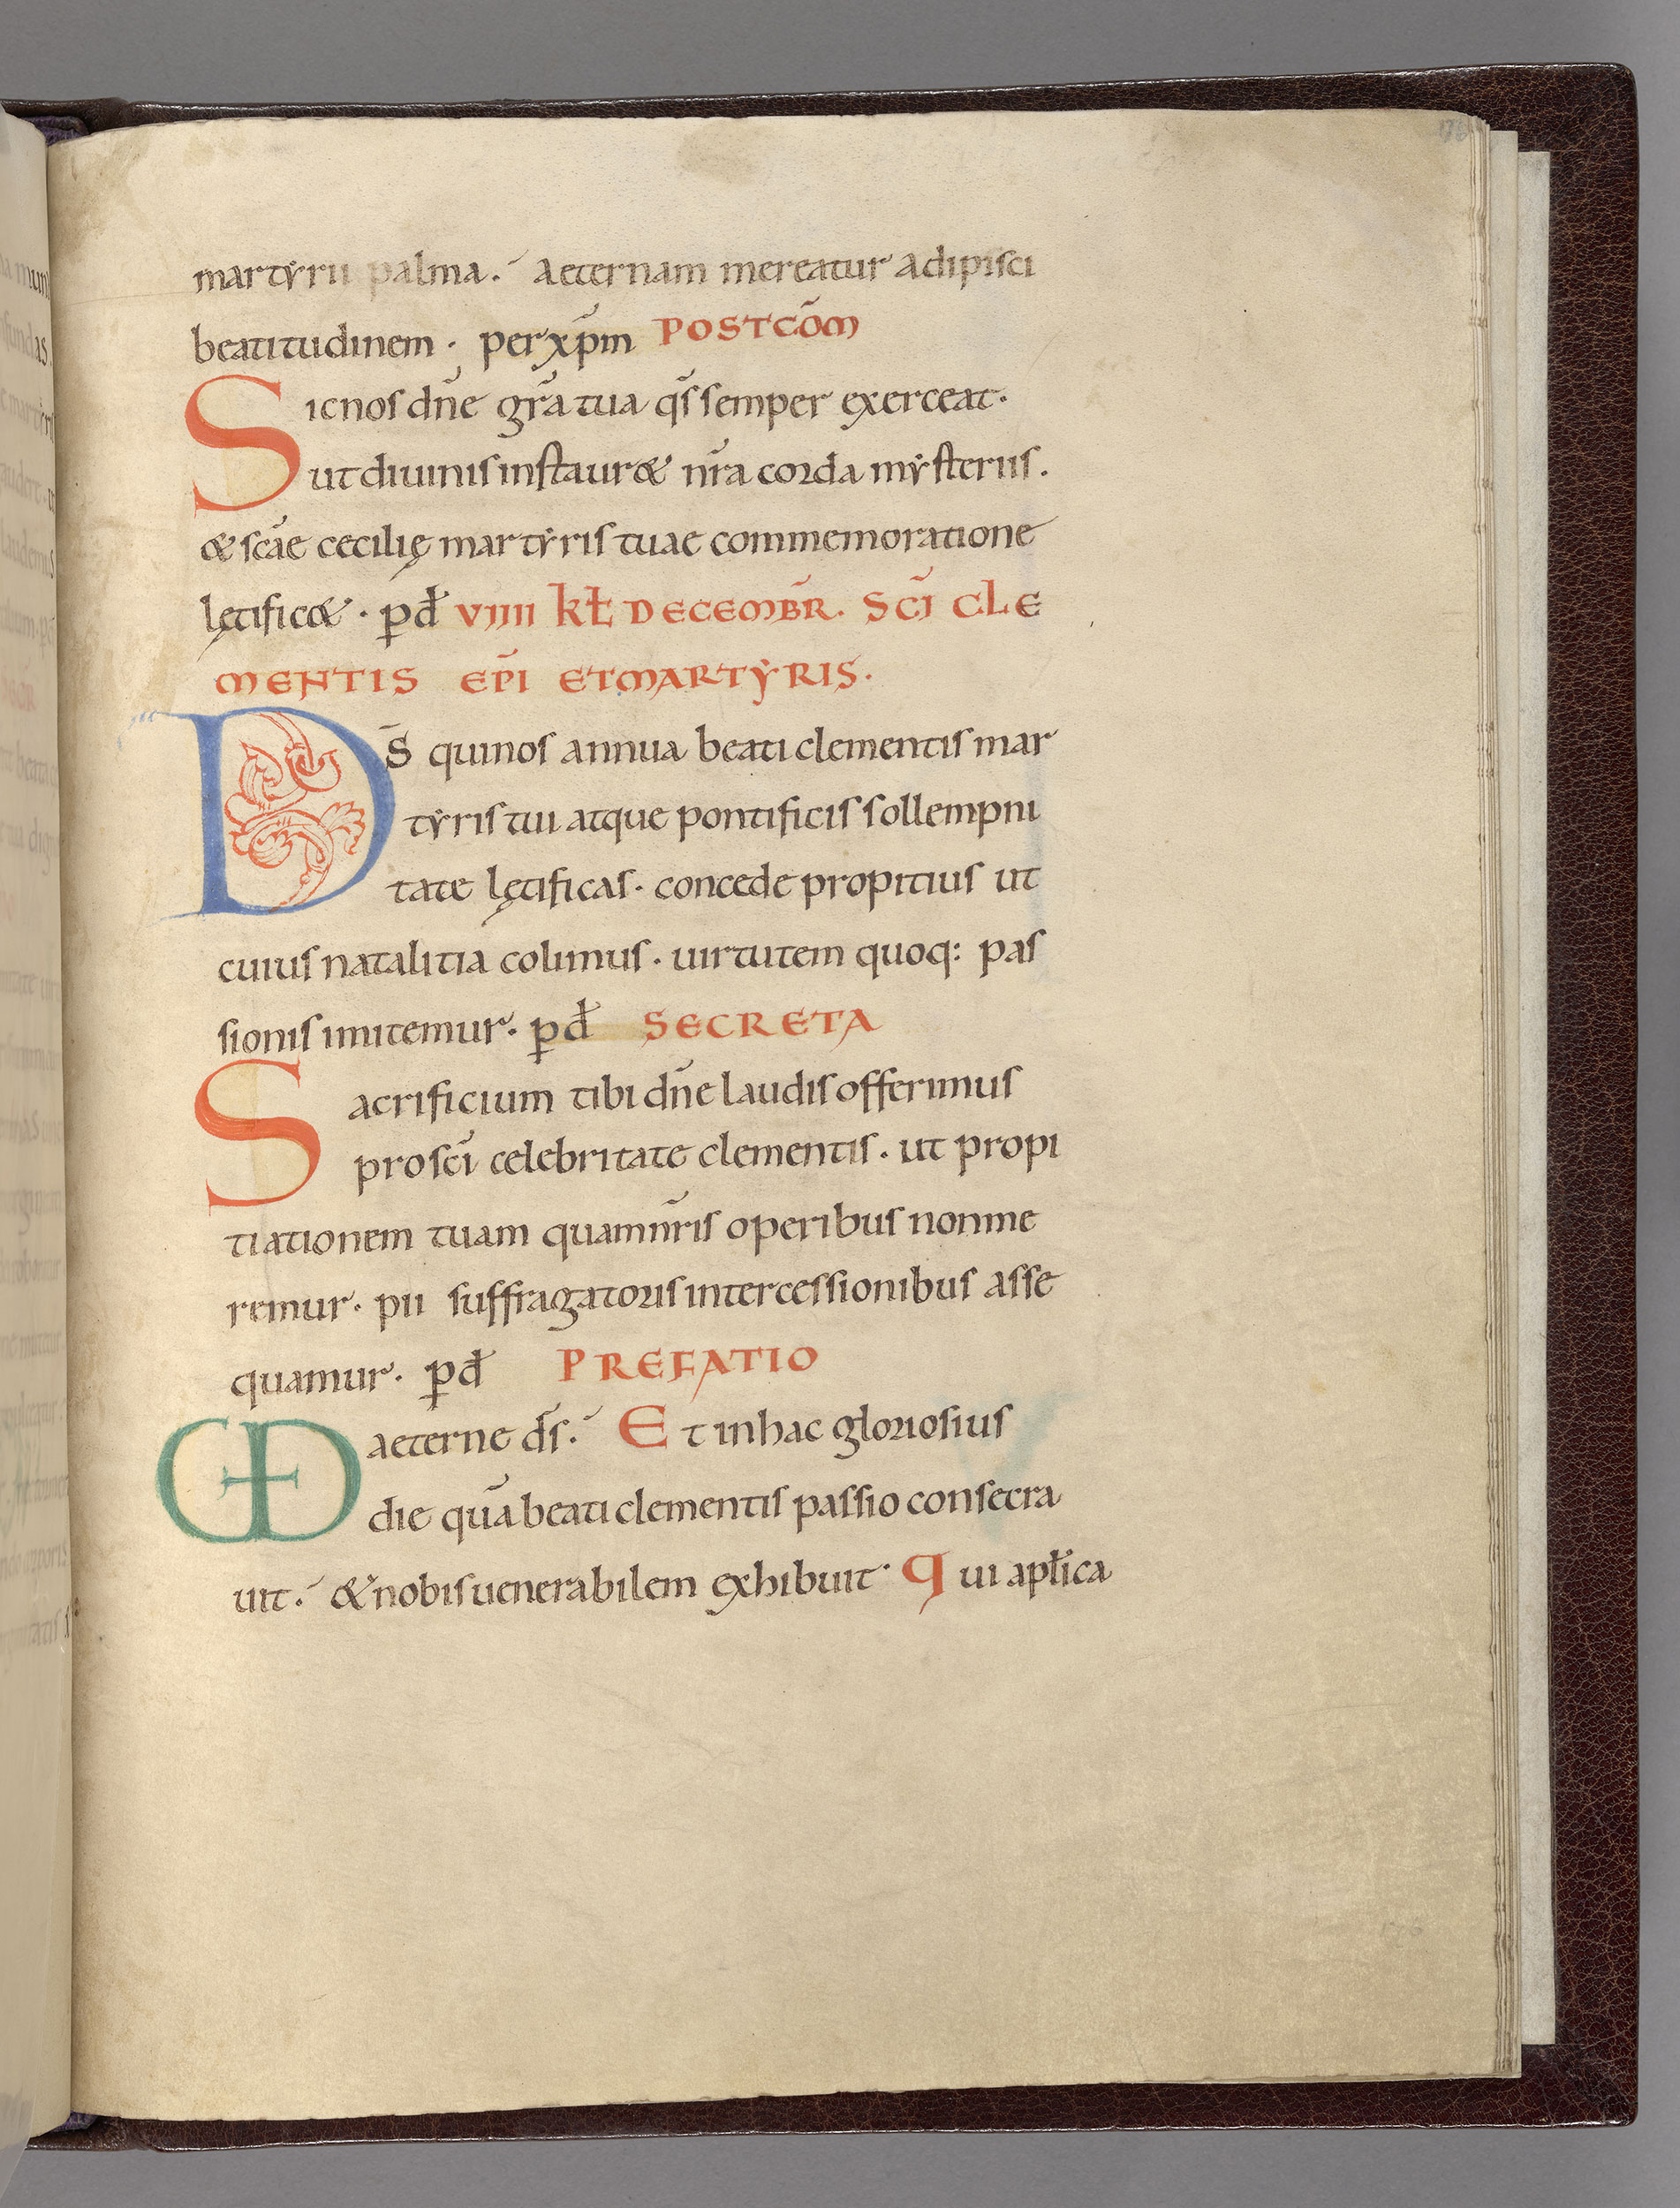 martẏrii palma. aeternam mereatur adipisci
beatitudinem . per xp̄m POSTCŌM
Sic nos dn̄e gr̄a tua qs̄ semper exerceat.
ut diuinis instaur& nr̄a corda mẏsteriis.
& sc̄ae cecilię martẏris tuae commemoratione
lętific&. p̱đ VIIII kł DECEMBR̄. SC̄I CLE
MENTIS EP̄I ET MARTẎRIS.
DS̄ qui nos annua beati clementis mar
tẏris tui atque pontificis sollempni
tate lętificas. concede propitius ut
cuius natalitia colimus. uirtutem quoq: pas
sionis imitemur. p̱đ SECRETA
Sacrificium tibi dn̄e laudis offerimus
pro sc̄i celebritate clementis. ut propi
tiationem tuam quam nr̄is operibus non me
remur. pii suffragatoris intercessionibus asse
quamur. p̱đ PREFATIO
UD aeterne ds̄. Et in hac gloriosius
die quā beati clementis passio consecra
uit. & nobis uenerabilem exhibuit. Qui apłica